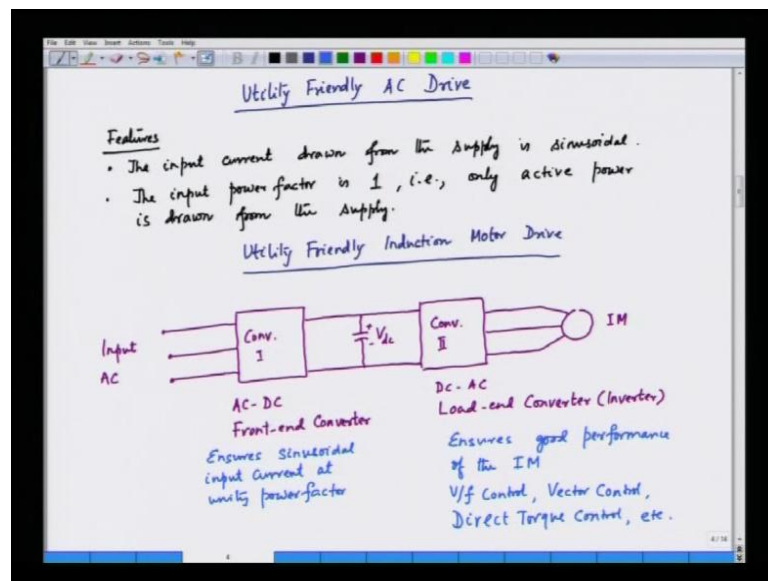 File Edit View Insert Actions Tools Help
Utility Friendly AC Drive
Features
• The input current drawn from the supply is sinusoidal.
• The input power factor is 1, i.e., only active power
is drawn from the supply.
Utility Friendly Induction Motor Drive
Input
AC
Conv.
I
+
-
Vdc
Conv.
II
IM
AC-DC
Front-end Converter
Ensures sinusoidal
input current at
unity power factor
DC-AC
Load-end Converter (Inverter)
Ensures good performance
of the IM
V/f Control, Vector Control,
Direct Torque Control, etc.
4/14
4